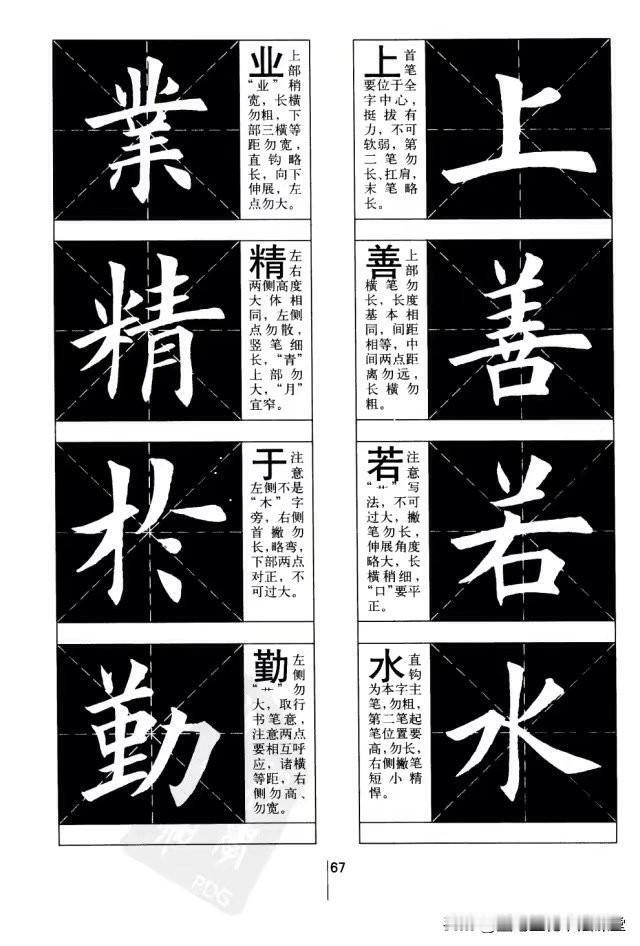 上
上 首笔
要位于全
字中心，
挺拔有
力，不可
软弱，第
二笔勿
长、扛肩，
末笔略
长。
善
善 上部
横笔勿
长，长度
基本相
同，间距
相等，中
间两点距
离勿远，
长横勿
粗。
若
若 注意
“艹”写
法，不可
过大，撇
笔勿长，
伸展角度
略大，长
横稍细，
“口”要平
正。
水
水 直钩
为本字主
笔，勿粗，
第二笔起
笔位置要
高，勿长，
右侧撇笔
短小精
悍。
業
业 上部
“业”稍
宽，长横
勿粗，下
部三横等
距勿宽，
直钩略
长，向下
伸展，左
点勿大。
精
精 左右
两侧高度
大体相
同，左侧
点勿散，
竖笔细
长，“青”
上部勿
大，“月”
宜窄。
於
于 注意
左侧不是
“木”字
旁，右侧
首撇勿
长，略弯，
下部两点
对正，不
可过大。
勤
勤 左侧
“艹”勿
大，取行
书笔意，
注意两点
要相互呼
应，诸横
等距，右
侧勿高、
勿宽。
PDG
67